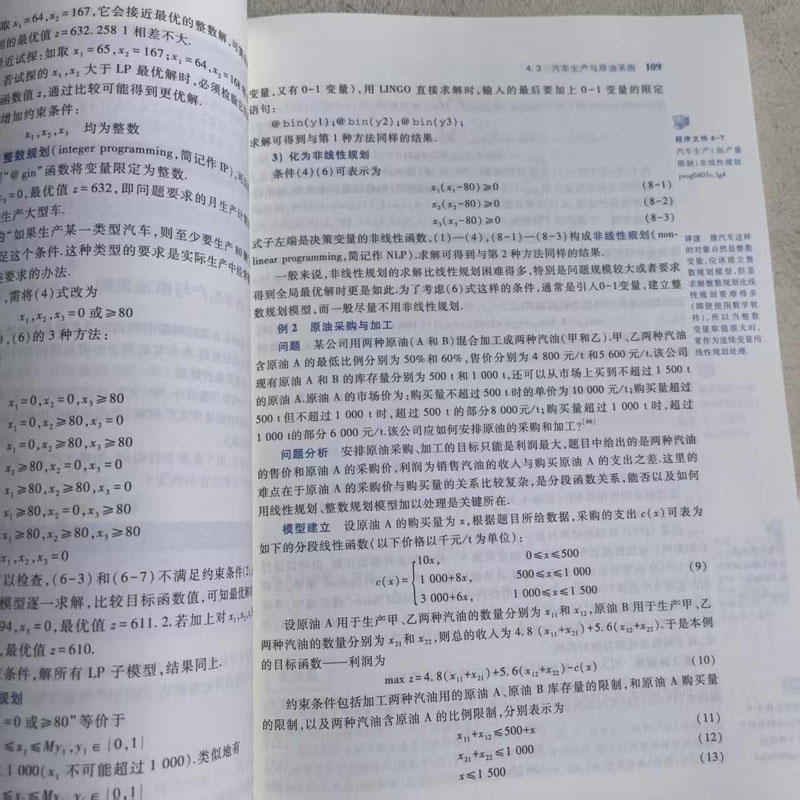 取x₁=64,x₂=167,它会接近最优的整数解,可
的最优值z=632.258 1相差不大.
近试探:如取x₁=65,x₂=167;x₁=64,x₂=168
若试探的x₁,x₂大于LP最优解时,必须检验它
函数值z,通过比较可能得到更优解.
增加约束条件:
x₁,x₂,x₃ 均为整数
整数规划(integer programming,简记作IP),可
"@gin"函数将变量限定为整数.
x₃=0,最优值z=632,即问题要求的月生产计
生产大型车.
的"如果生产某一类型汽车,则至少要生产80
足这个条件.这种类型的要求是实际生产中
要求的办法.
,需将(4)式改为
x₁,x₂,x₃=0或≥80
,(6)的3种方法:
x₁=0,x₂=0,x₃≥80
x₁=0,x₂≥80,x₃=0
x₁=0,x₂≥80,x₃≥80
x₁≥80,x₂=0,x₃=0
x₁≥80,x₂≥80,x₃=0
x₁≥80,x₂=0,x₃≥80
x₁≥80,x₂≥80,x₃≥80
x₁,x₂,x₃=0
以检查,(6-3)和(6-7)不满足约束条件
模型逐一求解,比较目标函数值,可知最优解
94,x₃=0,最优值z=611.2.若加上对x₁,x₂
值z=610.
条件,解所有LP子模型,结果同上.
规划
=0或≥80"等价于
≤x₁≤My₁,y₁∈{0,1}
1 000(x₁不可能超过1 000).类似地有
≤My₂,y₂∈{0,1}
4.3 汽车生产与原油采购 109
变量,又有0-1变量),用LINGO直接求解时,输入的最后要加上0-1变量的限定
语句:
@bin(y1);@bin(y2);@bin(y3);
求解可得到与第1种方法同样的结果.
3) 化为非线性规划
条件(4)(6)可表示为
x₁(x₁-80)≥0 (8-1)
x₂(x₂-80)≥0 (8-2)
x₃(x₃-80)≥0 (8-3)
式子左端是决策变量的非线性函数,(1)—(4),(8-1)—(8-3)构成非线性规划(non-
linear programming,简记作NLP).求解可得到与第2种方法同样的结果.
一般来说,非线性规划的求解比线性规划困难得多,特别是问题规模较大或者要求
得到全局最优解时更是如此.为了考虑(6)式这样的条件,通常是引入0-1变量,建立整
数规划模型,而一般尽量不用非线性规划.
例2 原油采购与加工
问题 某公司用两种原油(A和B)混合加工成两种汽油(甲和乙).甲、乙两种汽油
含原油A的最低比例分别为50%和60%,售价分别为4 800元/t和5 600元/t.该公司
现有原油A和B的库存量分别为500 t和1 000 t,还可以从市场上买到不超过1 500 t
的原油A.原油A的市场价为:购买量不超过500 t时的单价为10 000元/t;购买量超过
500 t但不超过1 000 t时,超过500 t的部分8 000元/t;购买量超过1 000 t时,超过
1 000 t的部分6 000元/t.该公司应如何安排原油的采购和加工?[66]
问题分析 安排原油采购、加工的目标只能是利润最大,题目中给出的是两种汽油
的售价和原油A的采购价,利润为销售汽油的收入与购买原油A的支出之差.这里的
难点在于原油A的采购价与购买量的关系比较复杂,是分段函数关系,能否以及如何
用线性规划、整数规划模型加以处理是关键所在.
模型建立 设原油A的购买量为x,根据题目所给数据,采购的支出c(x)可表为
如下的分段线性函数(以下价格以千元/t为单位):
10x, 0≤x≤500
c(x)={1 000+8x, 500≤x≤1 000 (9)
3 000+6x, 1 000≤x≤1 500
设原油A用于生产甲、乙两种汽油的数量分别为x₁₁和x₁₂,原油B用于生产甲、乙
两种汽油的数量分别为x₂₁和x₂₂,则总的收入为4.8(x₁₁+x₂₁)+5.6(x₁₂+x₂₂).于是本例
的目标函数——利润为
max z=4.8(x₁₁+x₂₁)+5.6(x₁₂+x₂₂)-c(x) (10)
约束条件包括加工两种汽油用的原油A、原油B库存量的限制,和原油A购买量
的限制,以及两种汽油含原油A的比例限制,分别表示为
x₁₁+x₁₂≤500+x (11)
x₂₁+x₂₂≤1 000 (12)
x≤1 500 (13)
程序文件4-7
汽车生产(加产量
限制)非线性规划
prog0403c.lg4
评注 像汽车这样
的对象自然是整数
变量,应该建立整
数规划模型,但是
求解整数规划比线
性规划要难得多
(即使使用数学软
件),所以当整数
变量取值很大时,
常作为连续变量用
线性规划处理.